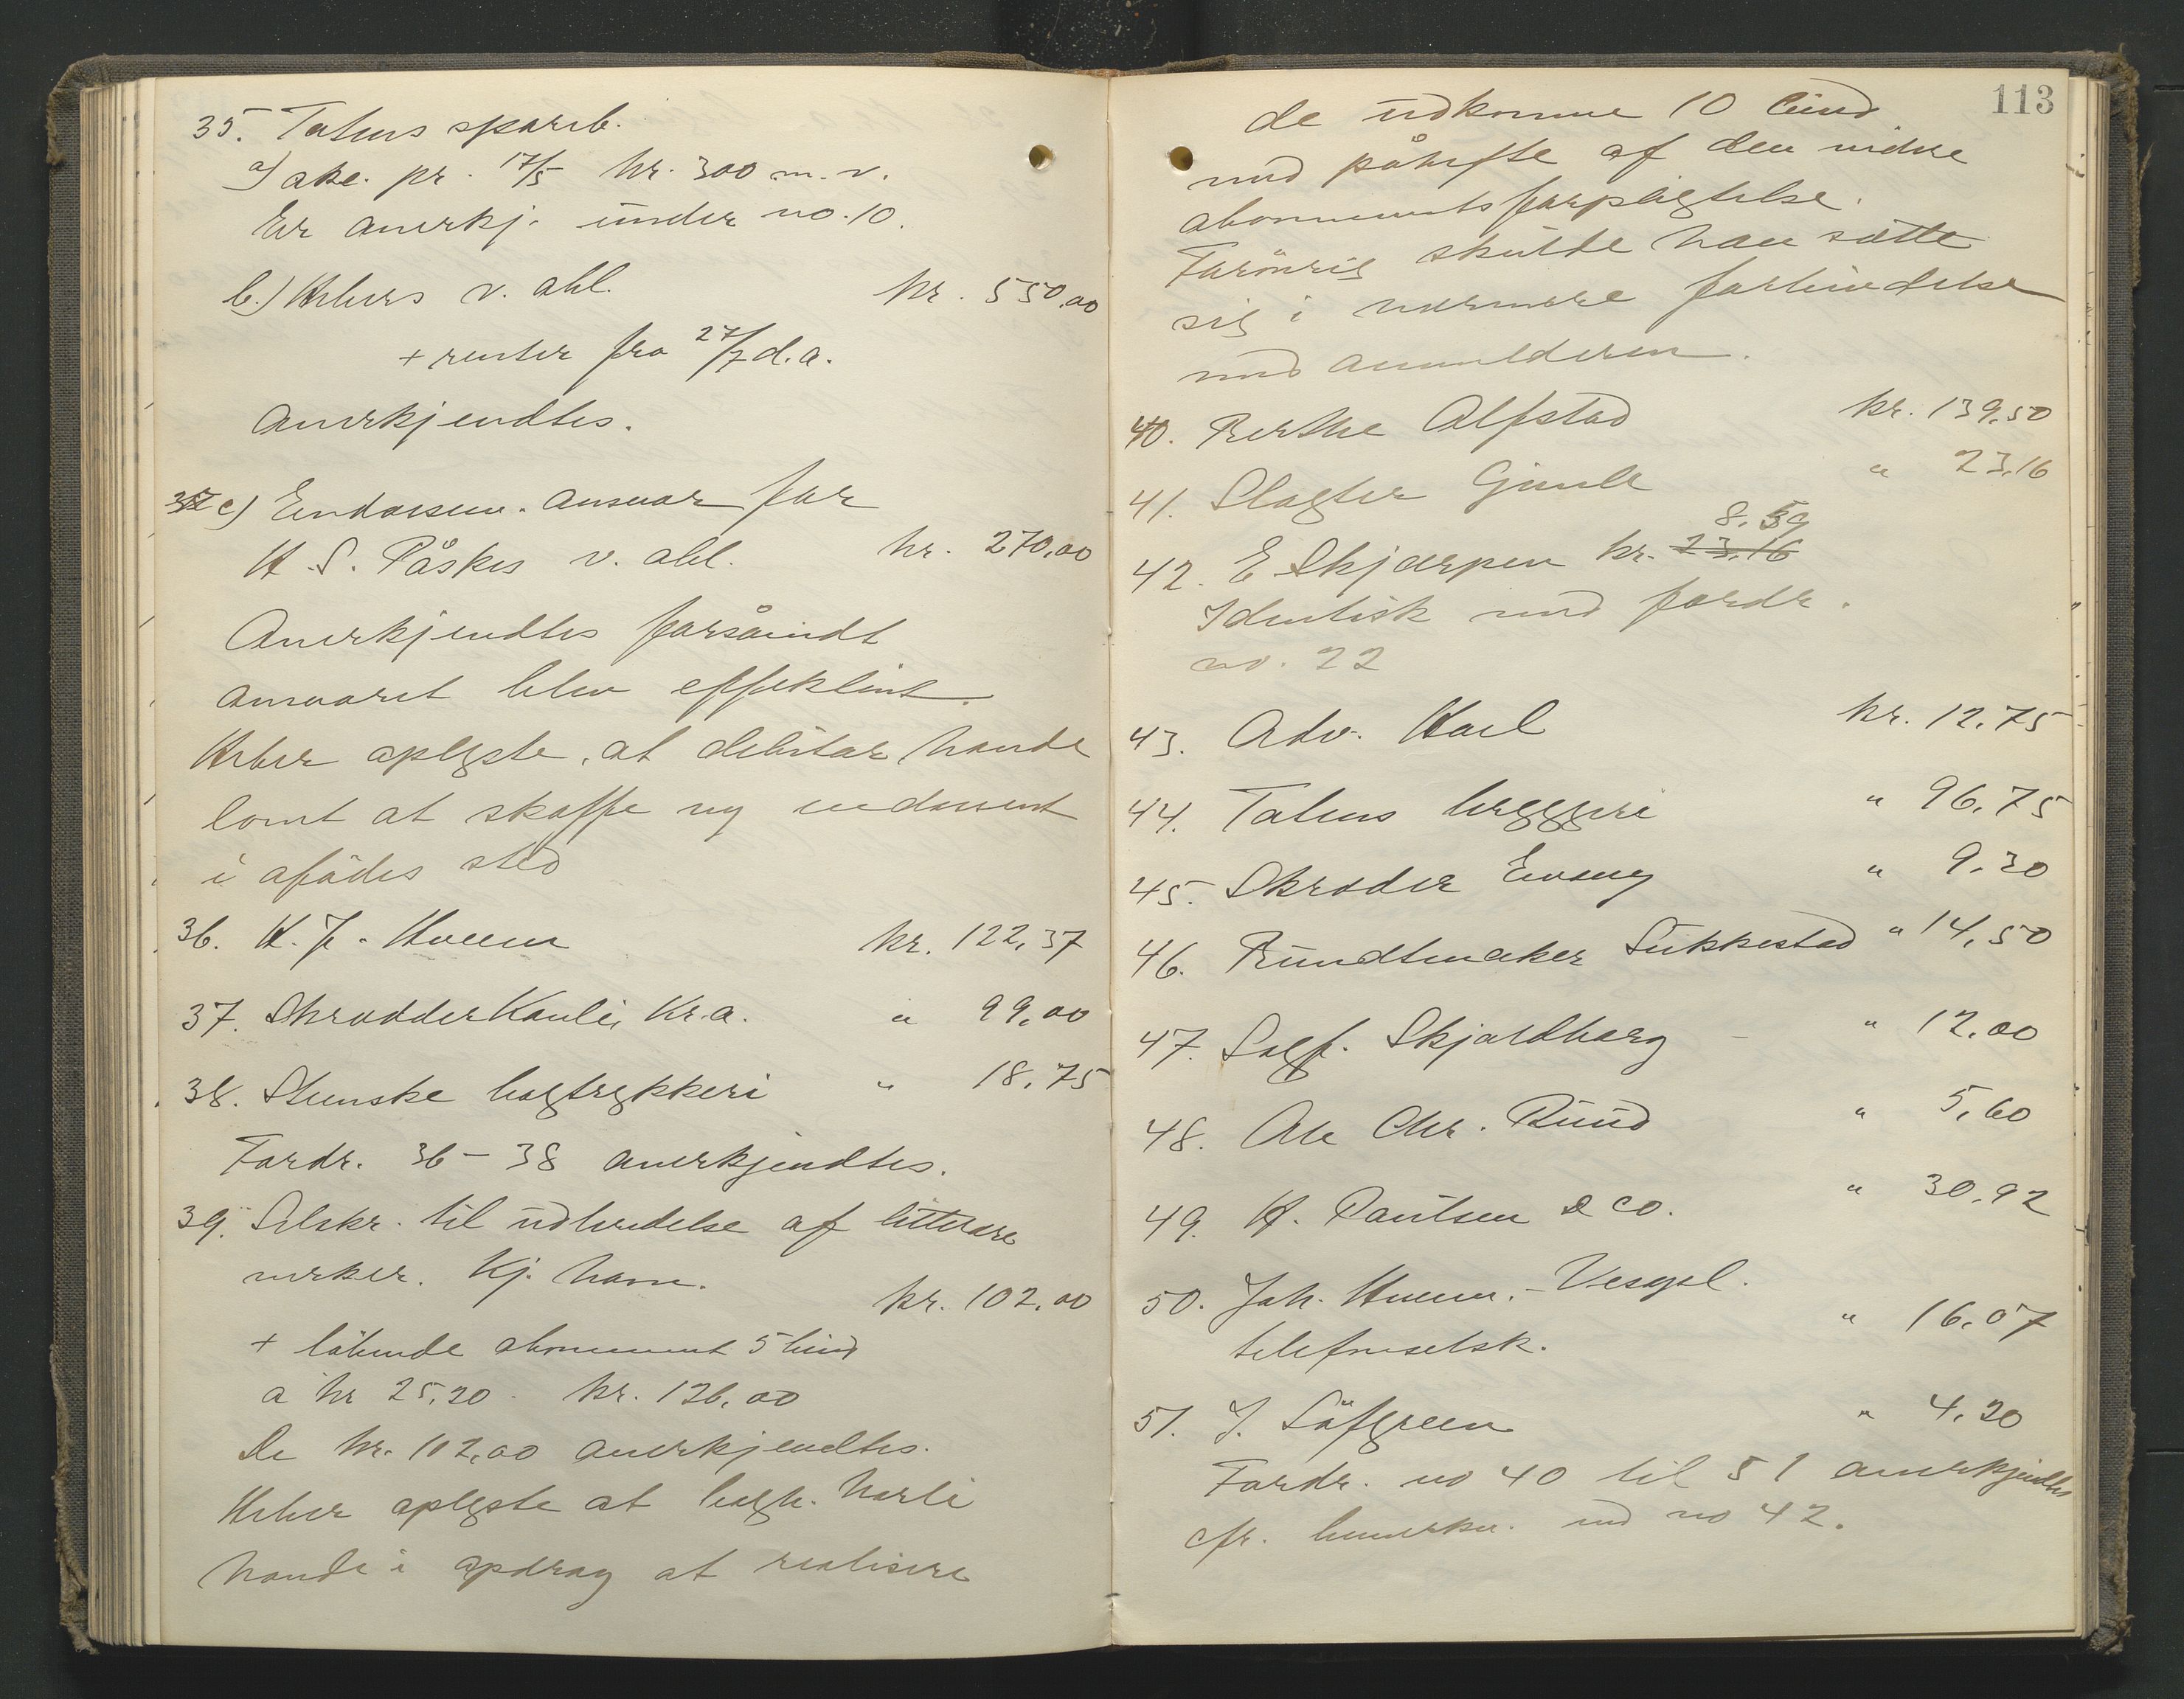 35. Totens spareb.
a) akc. pr. 17/5 kr. 300 m. v.
Er anerkj. under no. 10.
b.) Webers v. obl. kr. 550,00
+ renter fra 27/7 d.a.
Anerkjendtes.
c) Endossem. ansvar for
H. S. Påskes v. obl. kr. 270,00
Anerkjendtes forsåvidt
ansvaret blev effektivt.
Weber oplyste, at debitor havde
lovet at skaffe ny endossent
i afdødes sted
36. K. J. Hveem kr. 122,37
37. Skrædder Kr.a. " 99,00
38. Stenske bogtrykkeri " 18,75
Fordr. 36 – 38 anerkjendtes.
39. Selsk. til udbredelse af litterære
verker. Kj. havn. kr. 102,00
+ løbende abonnement 5 bind
a kr 25,20 kr. 126,00
De kr. 102,00 anerkjendtes.
Weber oplyste at bogh. Narli
havde i opdrag at realisere
113
de udkomne 10 bind
med påhefte af den videre
abonnementsforpligtelse.
Forøvrig skulde han sætte
sig i nærmere forbindelse
med anmelderen.
40. Berthe Alfstad kr. 139,50
41. Slagter Gimle " 23,16
42. E Skjerpen kr. 23,16 8,59
Identisk med fordr.
no. 22
43. Adv. Hoel kr. 12,75
44. Totens bryggeri " 96,75
45. Skrædder Evang " 9,30
46. Bundtmaker Sukkestad " 14,50
47. Sagf. Skjoldborg – " 12,00
48. Ole Chr. Bund " 5,60
49. H. Paulsen & co. " 30,92
50. Joh. Hveem. – Vesopl.
telefonselsk. " 16,07
51. J. Löfgreen " 4,20
Fordr. no 40 til 51 anerkjendtes
cfr. bemerkn. ved no 42.